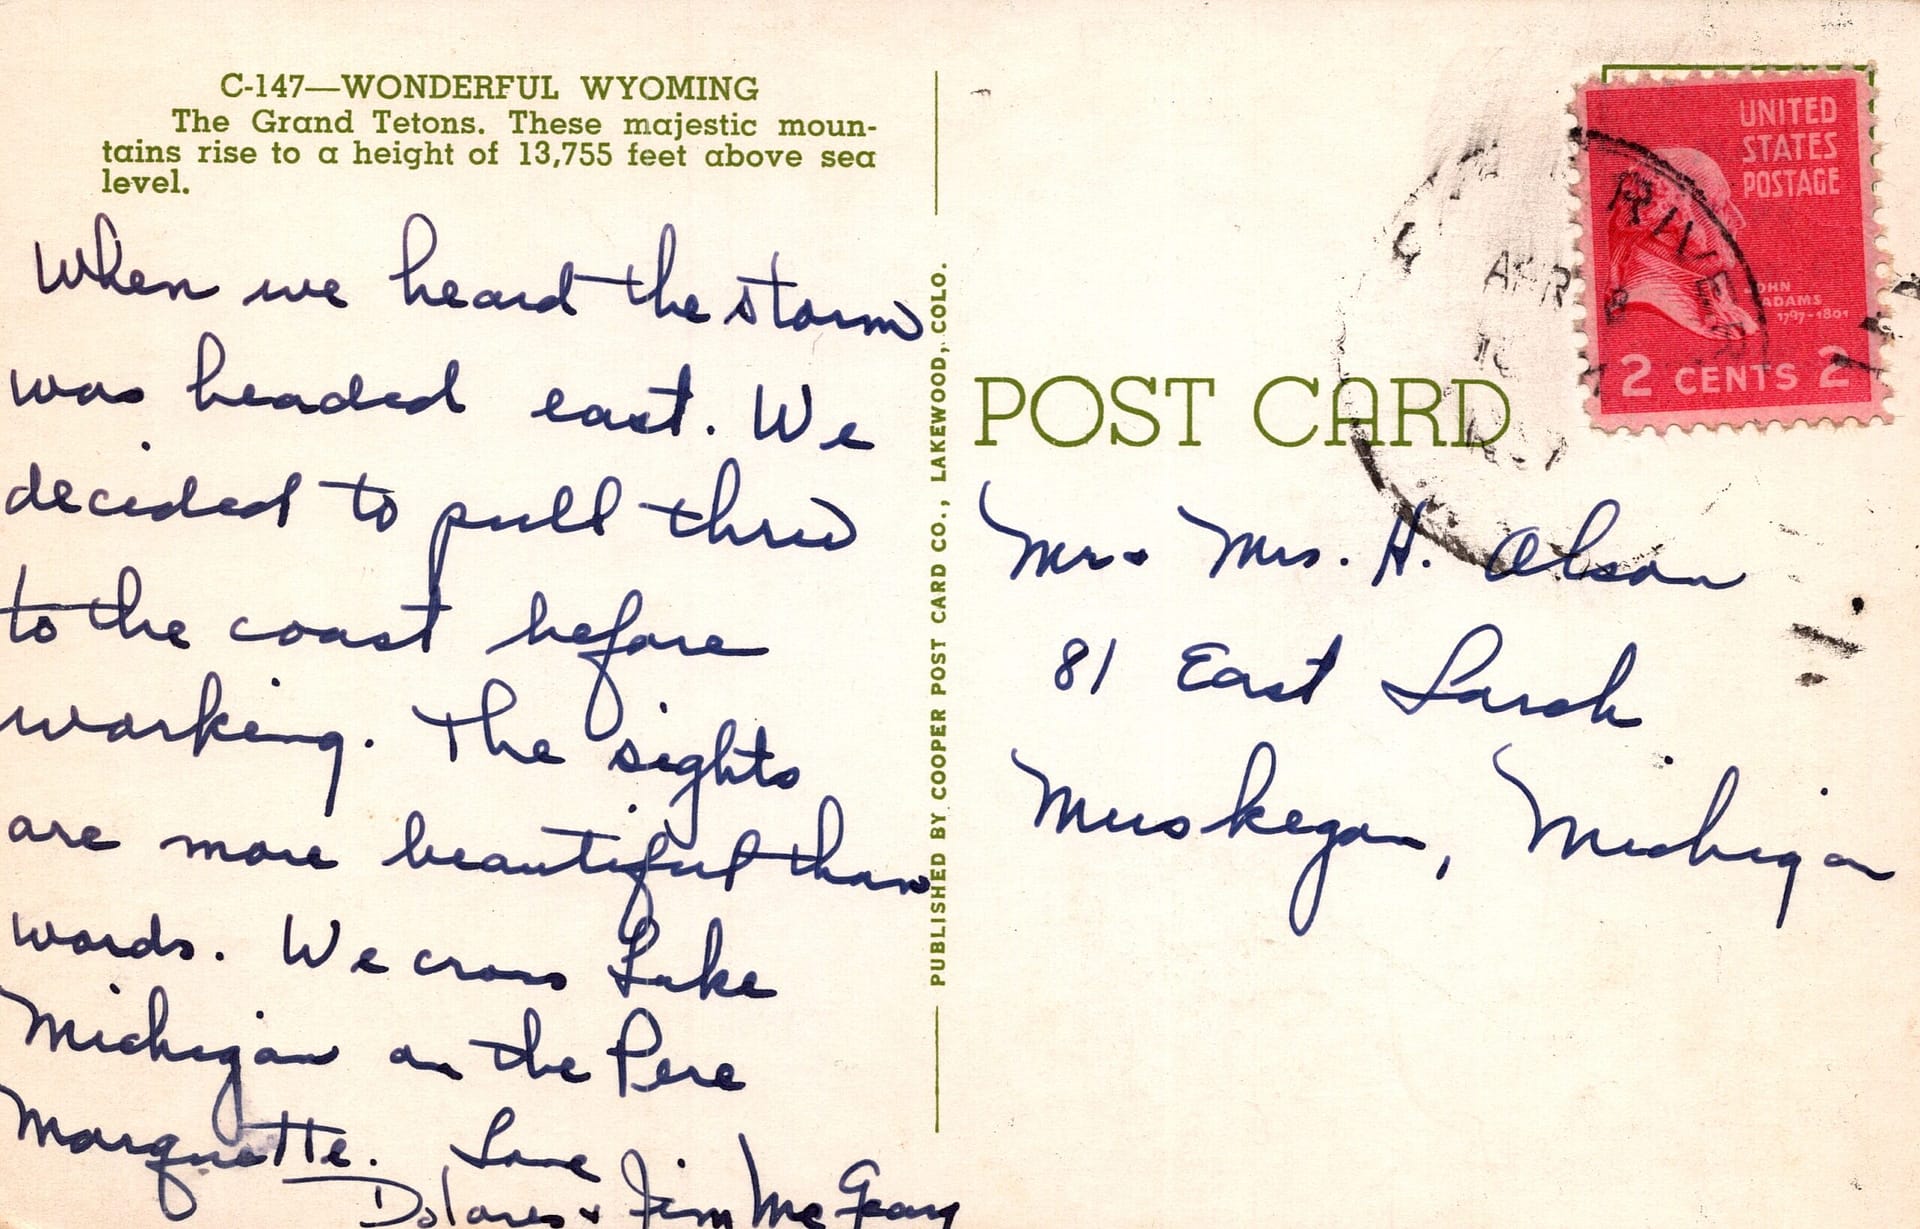 C-147—WONDERFUL WYOMING
The Grand Tetons. These majestic moun-
tains rise to a height of 13,755 feet above sea
level.
When we heard the storm
was headed east. We
decided to pull thru
to the coast before
working. The sights
are more beautiful than
words. We cross Lake
Michigan on the Pere
Marquette. Love
Dolores & Jim McGeary
PUBLISHED BY COOPER POST CARD CO., LAKEWOOD, COLO.
POST CARD
UNITED
STATES
POSTAGE
JOHN
ADAMS
1797-1801
2 CENTS 2
RIVER
APR 8
Mr & Mrs. H. Olson
81 East Larch
Muskegon, Michigan